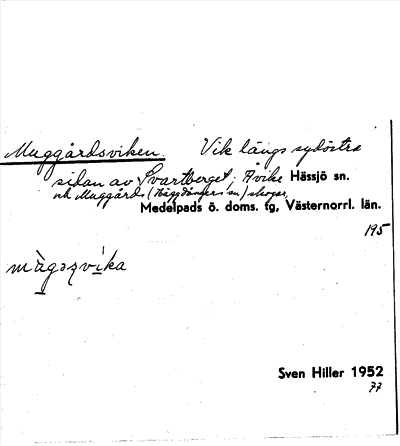 Muggårdsviken. Vik längs sydöstra
sidan av Svartberget; Åvike Hässjö sn.
och Muggårds (Häggdångers sn) skogar,
Medelpads ö. doms. tg, Västernorrl. län.
195
màgəʂvi̇ka
Sven Hiller 1952
77